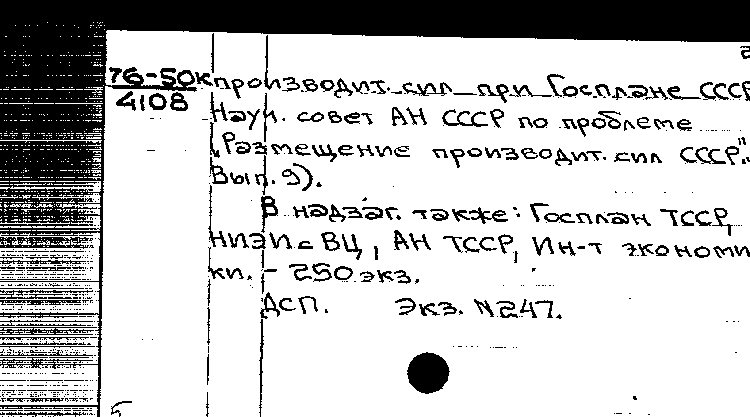 2
76-50к производит. сил при Госплане СССР
4108
Науч. совет АН СССР по проблеме
„Размещение производит. сил СССР".
Вып. 9).
В надзаг. также: Госплан ТССР,
НИЭИ с ВЦ, АН ТССР, Ин-т экономи
ки. - 250 экз.
ДСП. Экз. №247.
5